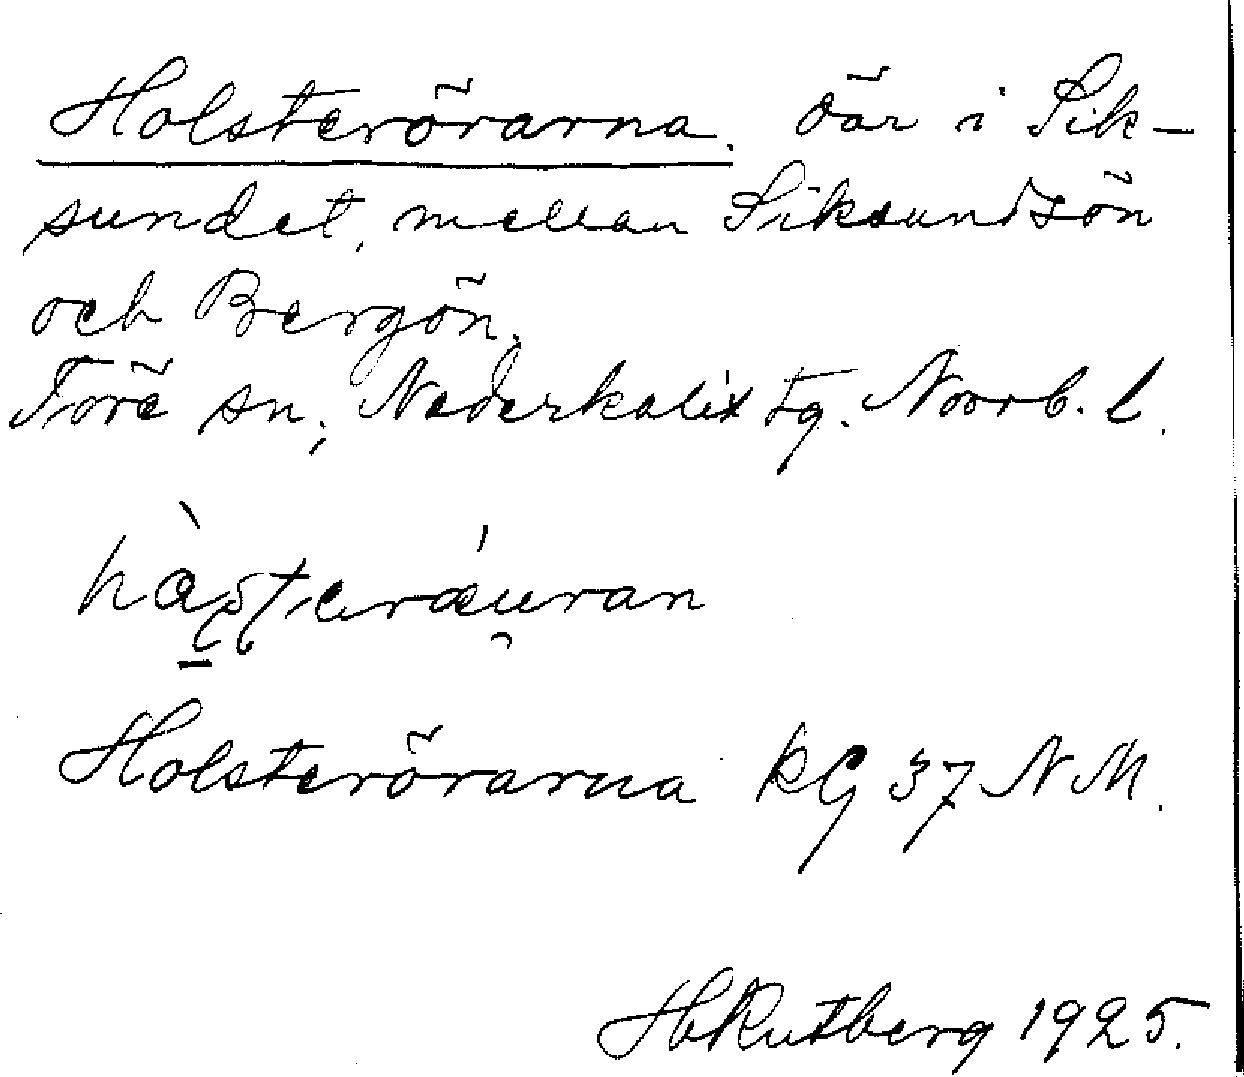 Holsterörarna. öar i Sik-
sundet, mellan Siksundsön
och Bergön.
Töre sn; Nederkalix tg. Norrb. l.
Holsterörarna KG 37 N M.
H Rutberg 1925.